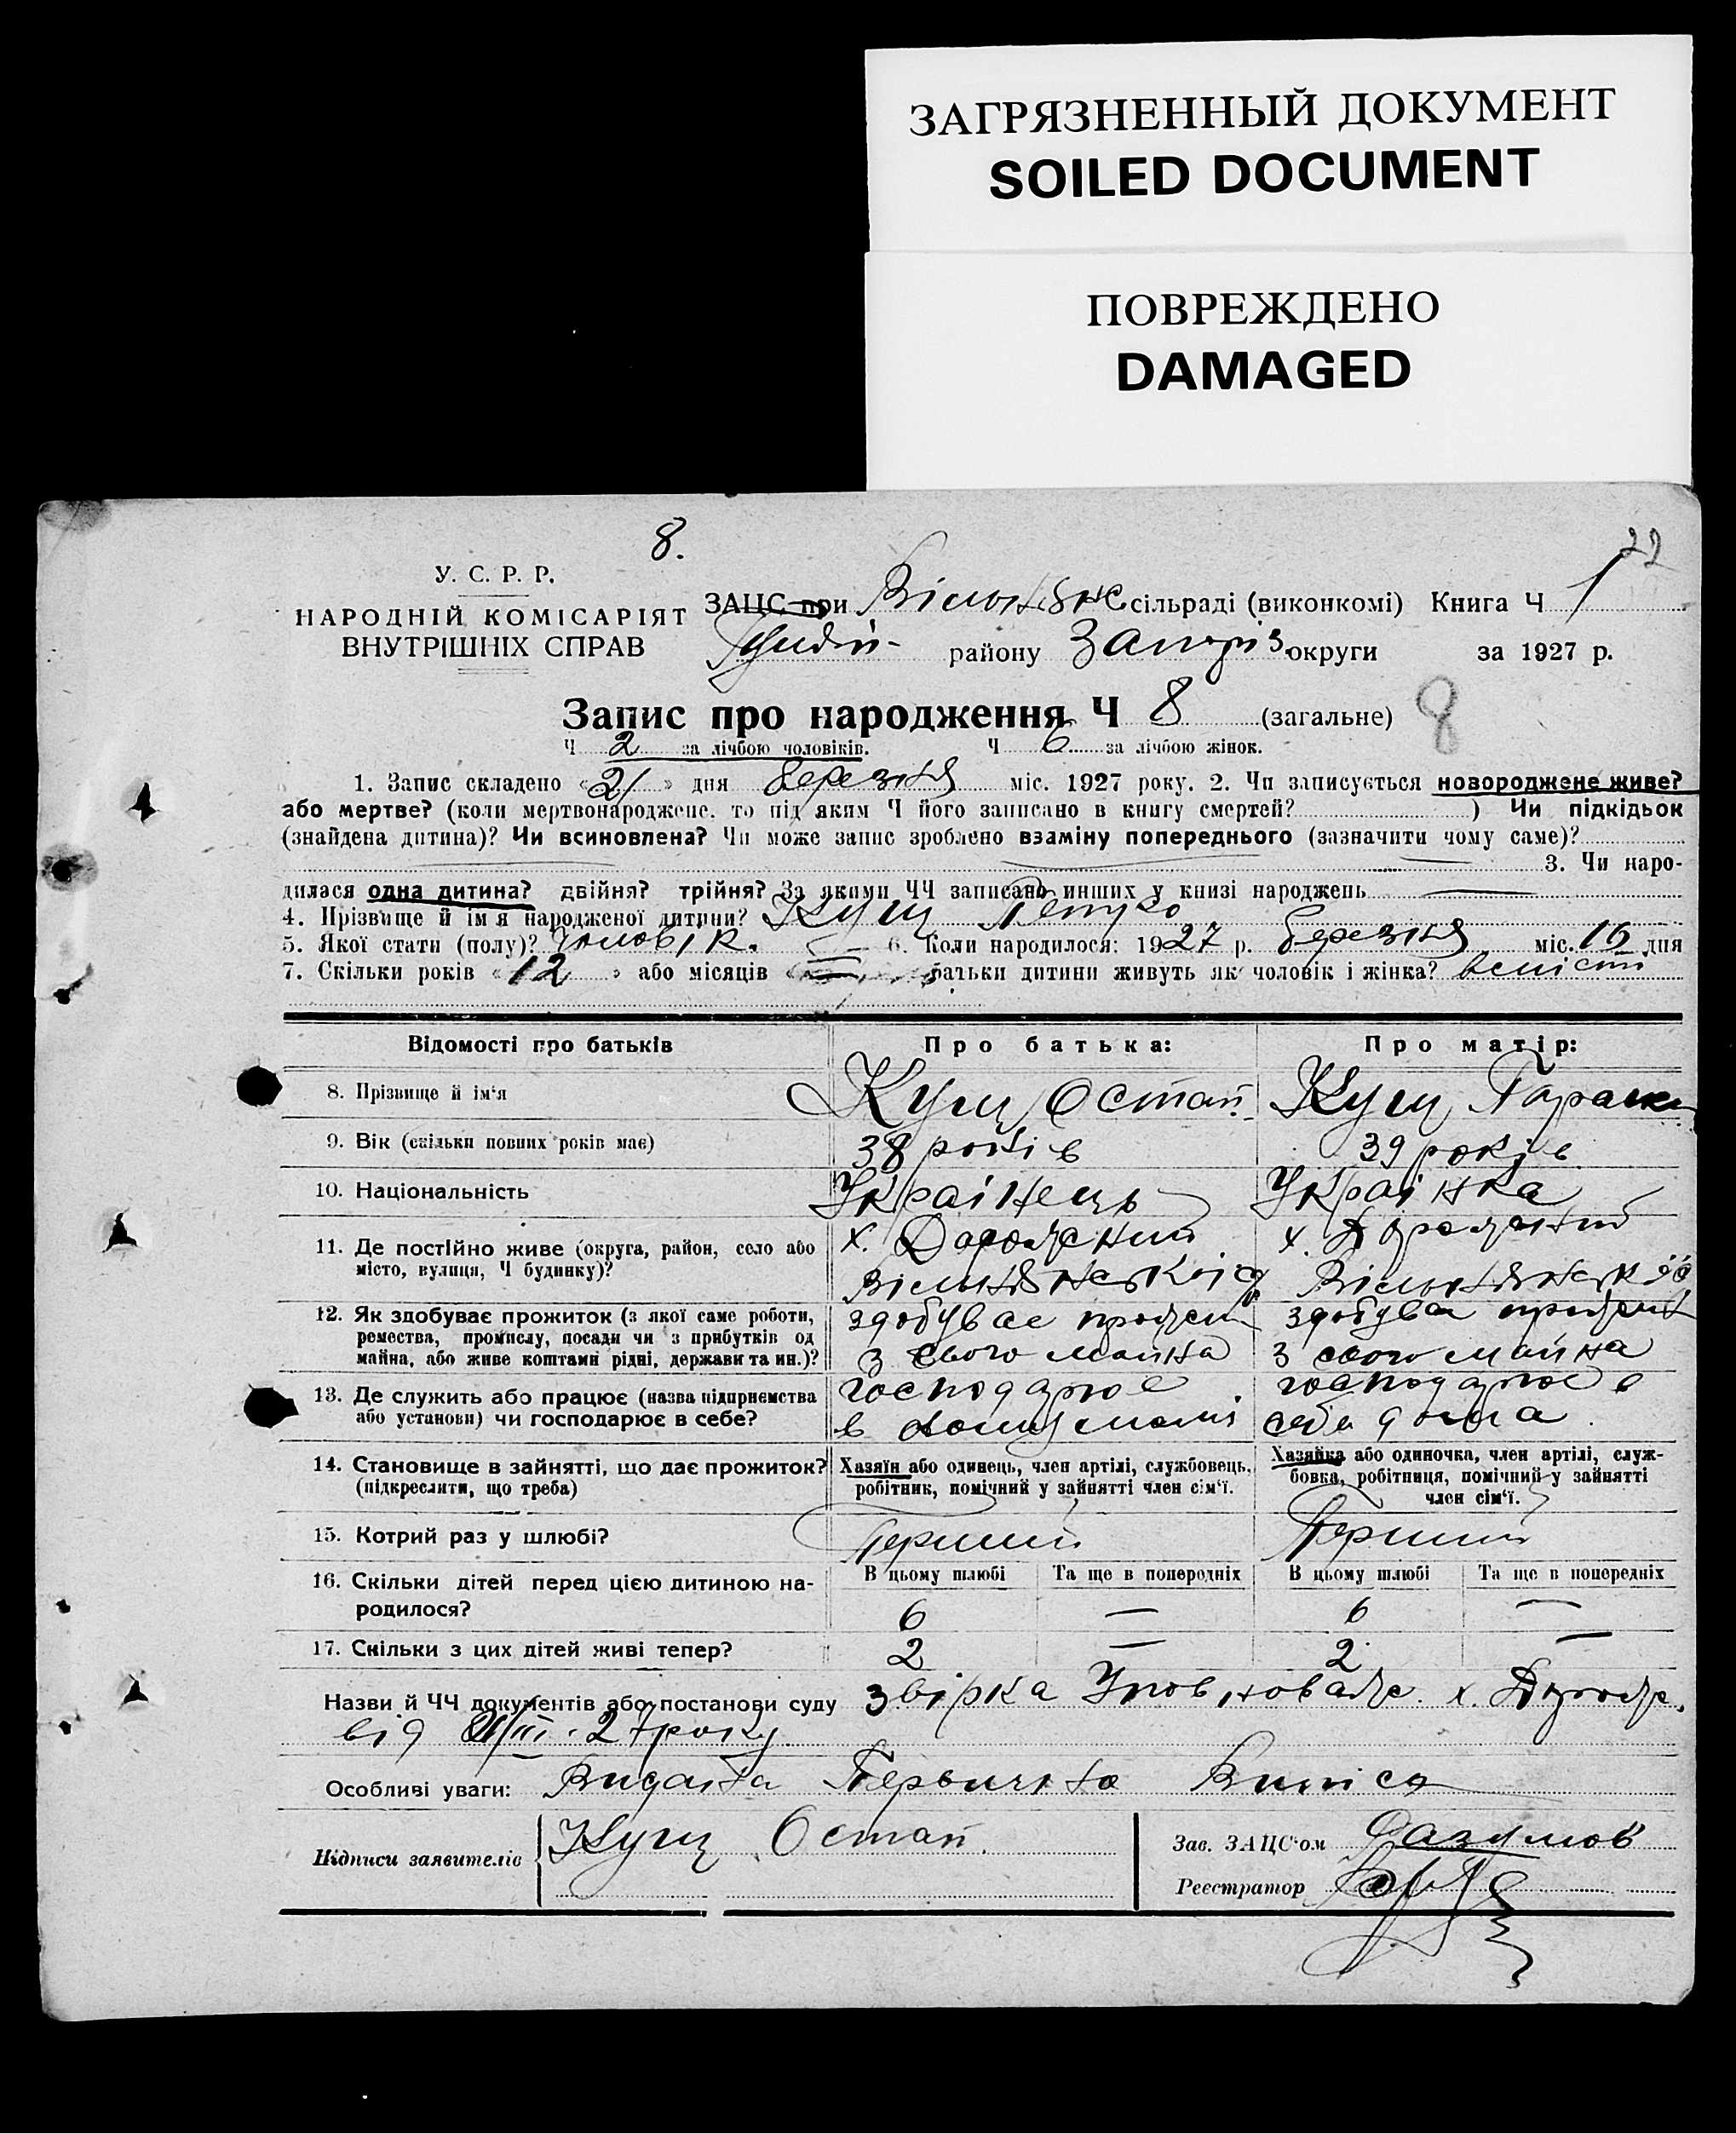 ЗАГРЯЗНЕННЫЙ ДОКУМЕНТ
SOILED DOCUMENT
ПОВРЕЖДЕНО
DAMAGED
8.
22
У. С. Р. Р.
НАРОДНІЙ КОМІСАРІЯТ
ВНУТРІШНІХ СПРАВ
ЗАЦС при сільраді (виконкомі) Книга Ч 1
району Запоріз округи за 1927 р.
Запис про народження Ч 8 (загальне) 8
Ч 2 за лічбою чоловіків. Ч 6 за лічбою жінок.
1. Запис складено «21» дня березня міс. 1927 року. 2. Чи записується новороджене живе?
або мертве? (коли мертвонароджене, то під яким Ч його записано в книгу смертей? ) Чи підкідьок
(знайдена дитина)? Чи всиновлена? Чи може запис зроблено взаміну попереднього (зазначити чому саме)?
3. Чи наро-
дилася одна дитина? двійня? трійня? За якими ЧЧ записано инших у книзі народжень
4. Прізвище й ім'я народженої дитини? Кущ Петро
5. Якої стати (полу)? Чоловік. 6. Коли народилося: 1927 р. березня міс. 16 дня
7. Скільки років «12» або місяців « — » батьки дитини живуть як чоловік і жінка? вмісті
Відомості про батьків Про батька: Про матір:
8. Прізвище й ім'я Кущ Остап Кущ
9. Вік (скільки повних років має) 38 років 39 років
10. Національність Українець Українка
11. Де постійно живе (округа, район, село або
місто, вулиця, Ч будинку)?
х. х.
12. Як здобуває прожиток (з якої саме роботи,
ремества, промислу, посади чи з прибутків од
майна, або живе коштами рідні, держави та ин.)?
здобуває
з свого майна
здобува
з свого майна
13. Де служить або працює (назва підприємства
або установи) чи господарює в себе?
господарює
в
господарює в
себе дома
14. Становище в зайнятті, що дає прожиток?
(підкреслити, що треба)
Хазяїн або одинець, член артілі, службовець,
робітник, помічний у зайнятті член сім'ї.
Хазяйка або одиночка, член артілі, служ-
бовка, робітниця, помічний у зайнятті
член сім'ї.
15. Котрий раз у шлюбі? Перший Перший
16. Скільки дітей перед цією дитиною на-
родилося?
В цьому шлюбі Та ще в попередніх В цьому шлюбі Та ще в попередніх
6 — 6 —
17. Скільки з цих дітей живі тепер? 2 — 2 —
Назви й ЧЧ документів або постанови суду звірка Уповноваж. х.
від 21/III. 27 року
Особливі уваги: Видана Первична Випись
Підписи заявителів Кущ Остап.
Зав. ЗАЦС'ом Разумов
Реєстратор